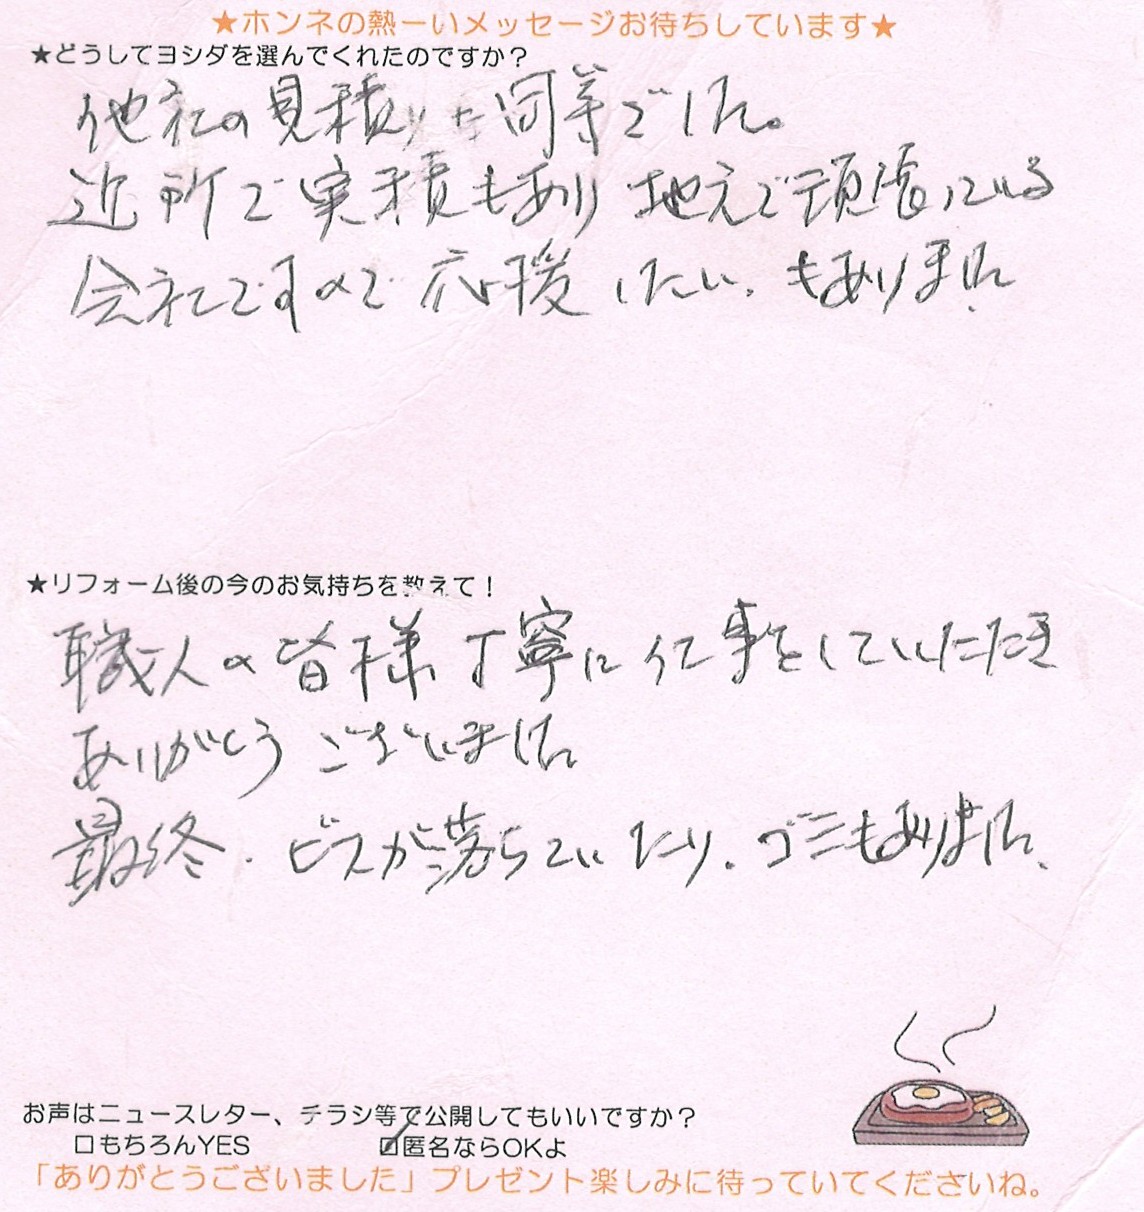 ★ホンネの熱ーいメッセージお待ちしています★
★どうしてヨシダを選んでくれたのですか？
他社の見積りと同等でした。
近所で実積もあり 地元で頑張っている
会社ですので 応援したい、もありました
★リフォーム後の今のお気持ちを教えて！
職人の皆様 丁寧に仕事をしていただき
ありがとうございました
最終、ビスが落ちていたり、ゴミもありました、
お声はニュースレター、チラシ等で公開してもいいですか？
□もちろんYES ☑匿名ならOKよ
「ありがとうございました」プレゼント楽しみに待っていてくださいね。